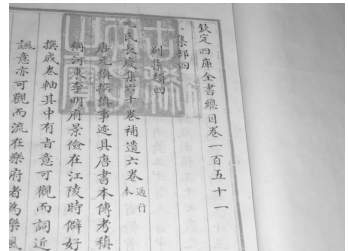 欽定四庫全書總目卷一百五十一
集部四
別集類四
元氏長慶集六十卷補遺六卷 通行本
唐元稹撰稹事迹具唐書本傳考稹
稱河東李明府景儉在江陵時僻好
撰成卷軸其中有旨意可觀而詞近
諷意亦可觀而流在樂府者為樂